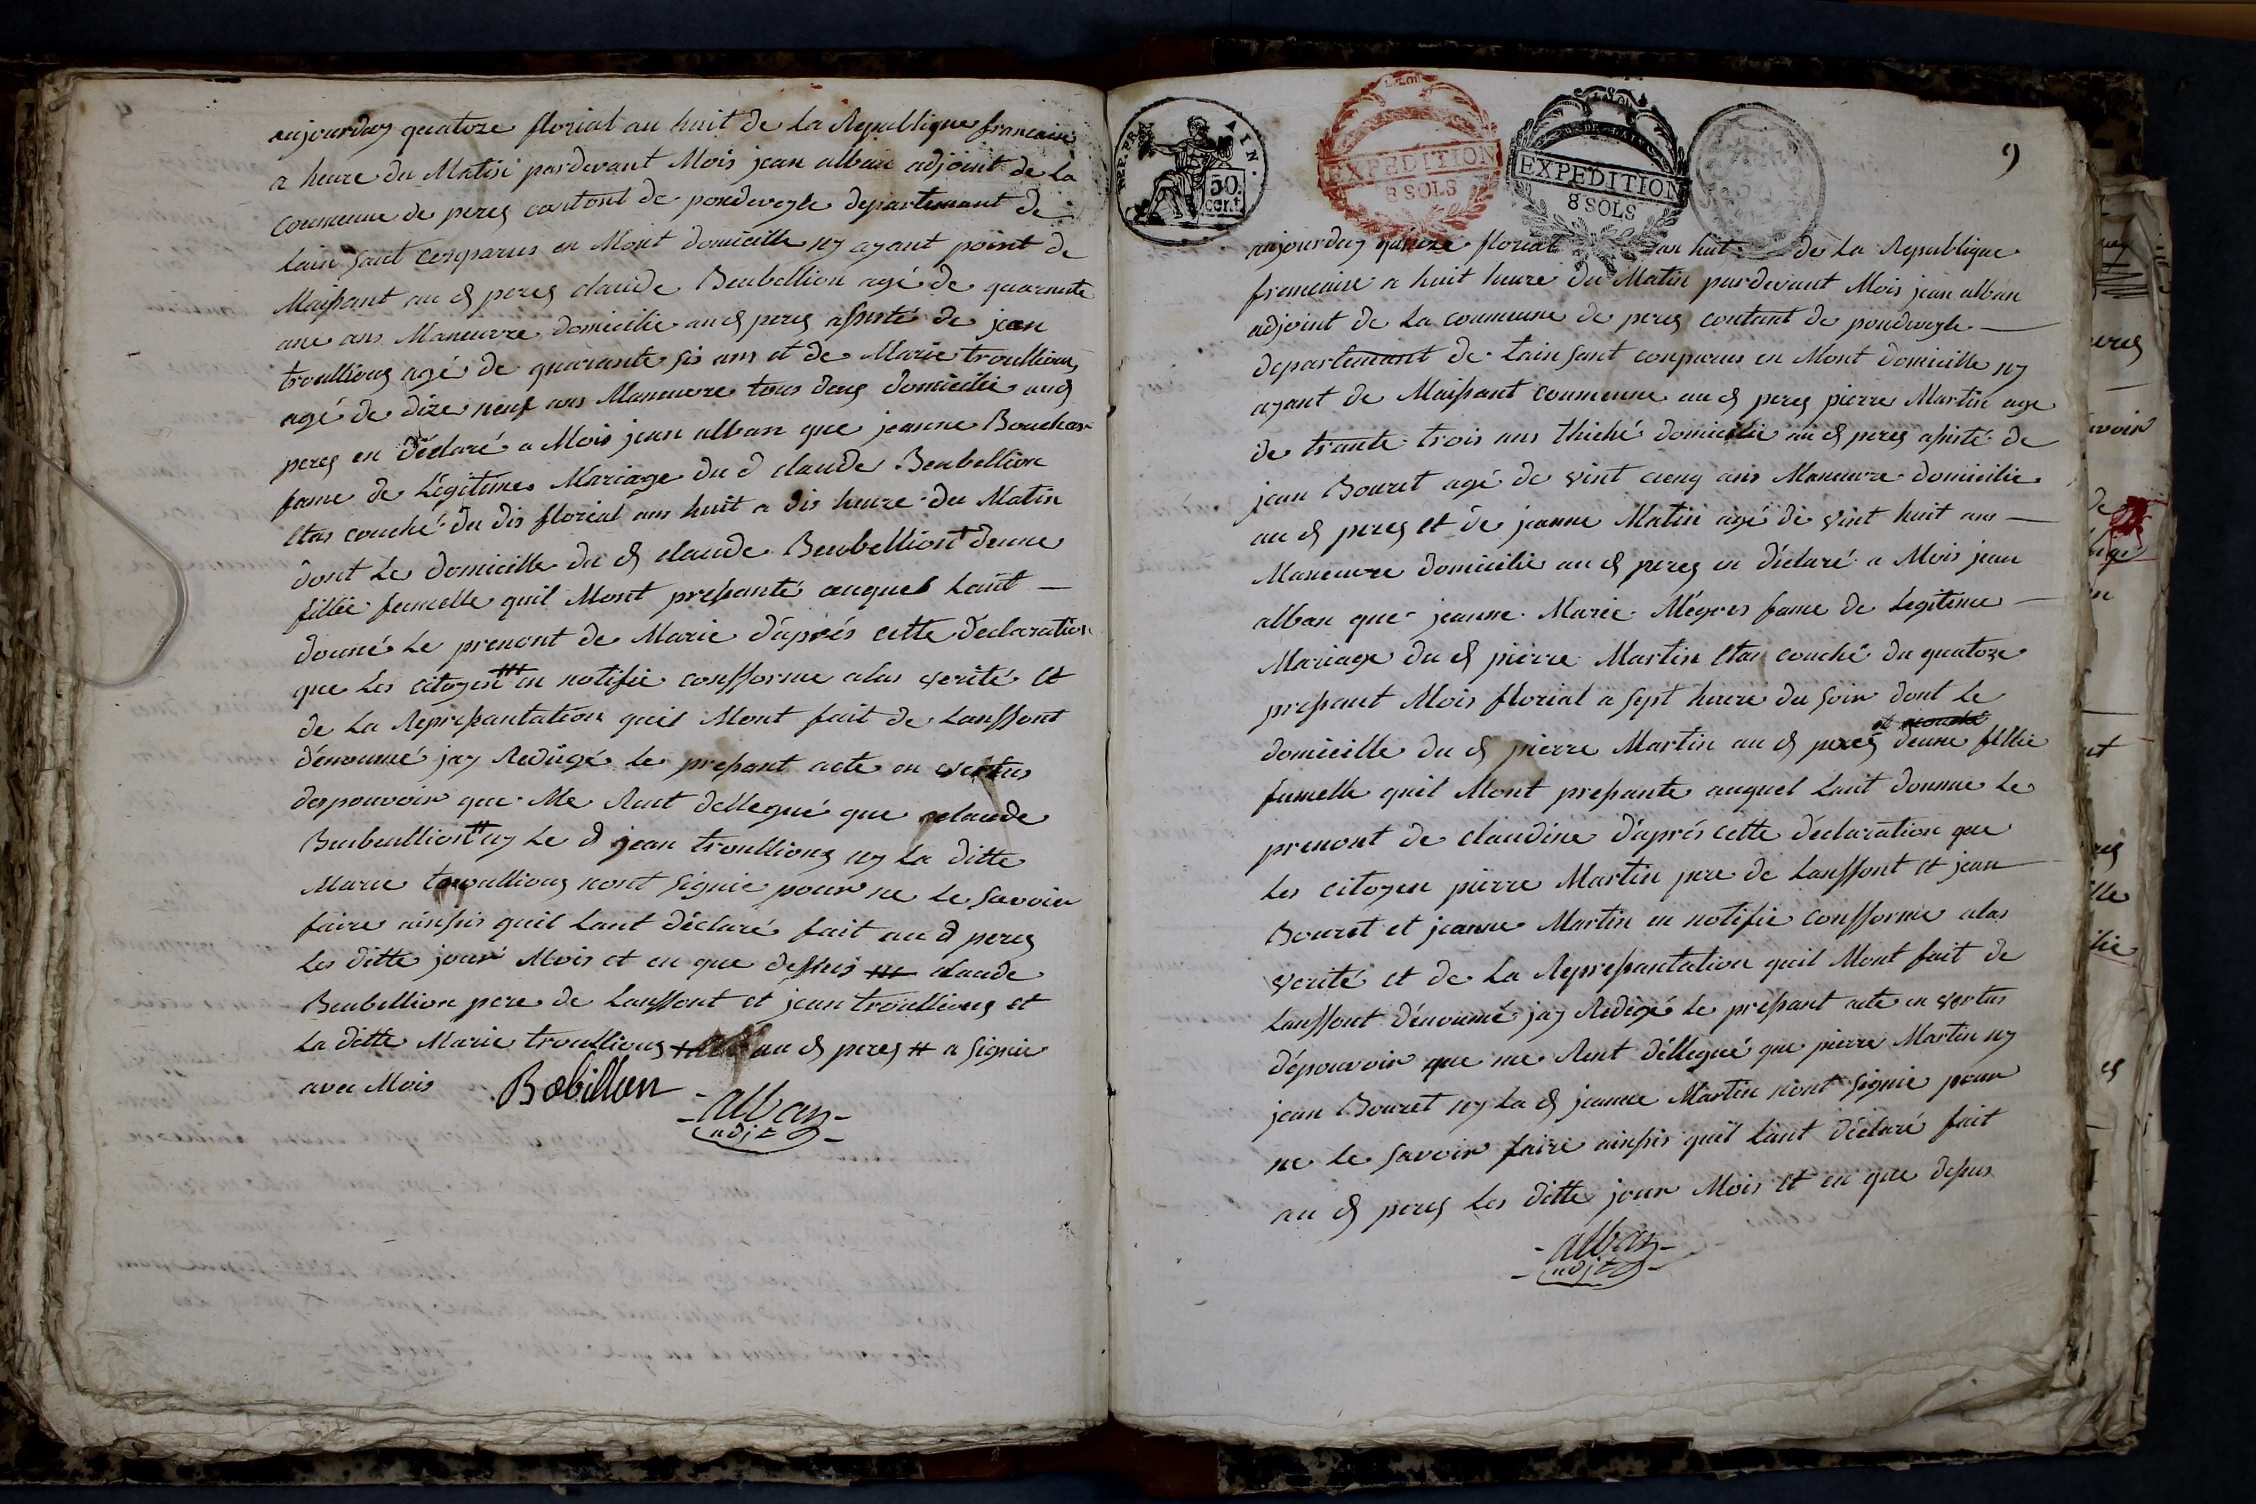 aujourduy quatoze florial an huit de la Republique francaise
a heure du Matin pardevant Mois jean alban adjoint de la
coumeune de perez contont de pondevayle departemant de
lain sont conparus en Mont domicille ny ayant point de
Maissant au d perez claude Beubellion agé de quarente
une ans Maneuvre domicilie au d perez assisté de jean
troullioux agé de quarante sis ans et de Marie troullioux
agé de dize neuf ans Maneuvre tous deus domicilie aud
perez en déclaré a Mois jean alban que jeanne Bouchar
fame de Légitime Mariage du d claude Beubellion
Etas couché du dis florial ans huit a dis heure du Matin
dont Le domicille du d claude Beubellion deune
fillie feumelle quil Mont pressanté auquel Lant
douné Le prenont de Marie d'aprés cette déclaration
que Les citoyen en notifie consforme alas verité et
de La Represantation quil Mont fait de Lansfont
dénoumé jay Redigé Le pressant acte en vertus
des pouvoir que Me Sunt dellegué que claude
Beubeullion ny Le d jean troullioux ny La ditte
Marie troullioux nont Signie pour ne Le Savoir
faire ainssis quil Lant déclaré fait au d perez
Les ditte jour Mois et en que dessus claude
Beubellion pere de Lansfont et jean troullioux et
La ditte Marie troullioux au d perez # a Signie
avec Mois
Bobillon
-alban-
adjt
REP. FRA
AIN.
50.
cent.
LA LOI
EXPEDITION
8 SOLS
EXPEDITION
8 SOLS
9
aujourduy quinze florial an huit de La Republique
francaise a huit heure du Matin pardevant Mois jean alban
adjoint de La coumeune de perez contant de pondevayle
departemant de Lain sont conparus en Mont domicille ny
ayant de Maissant coumeune au d perez pierre Martin age
de trante trois ans thiché domicilie au d perez assisté de
jean Bouret agé de vint cienq ans Maneuvre domicilie
au d perez et de jeanne Matin agé de vint huit ans
Maneuvre domicilie au d perez en déclaré a Mois jean
alban que jeanne Marie Mégres fame de Legitime
Mariage du d pierre Martin Etas couché du quatoze
pressant Mois florial a Sept heure du Soir dont Le
domicille du d pierre Martin au d perez deune fillie
fumelle quil Mont pressante auquel Lant donnne Le
prenont de claudine d'aprés cette déclaration que
Les citoyen pierre Martin pere de Lansfont et jean
Bouret et jeanne Martin en notifie consforme alas
verité et de La Represantation quil Mont fait de
Lansfont dénoumé jay Redigé Le pressant acte en vertus
dépouvoir que me Sunt déllegué que pierre Martin ny
jean Bouret ny La d jeanne Martin nont Signie pour
ne Le Savoir faire ainssis quil Lant déclaré fait
au d perez Les ditte jour Mois et en que desus
-alban-
adjt